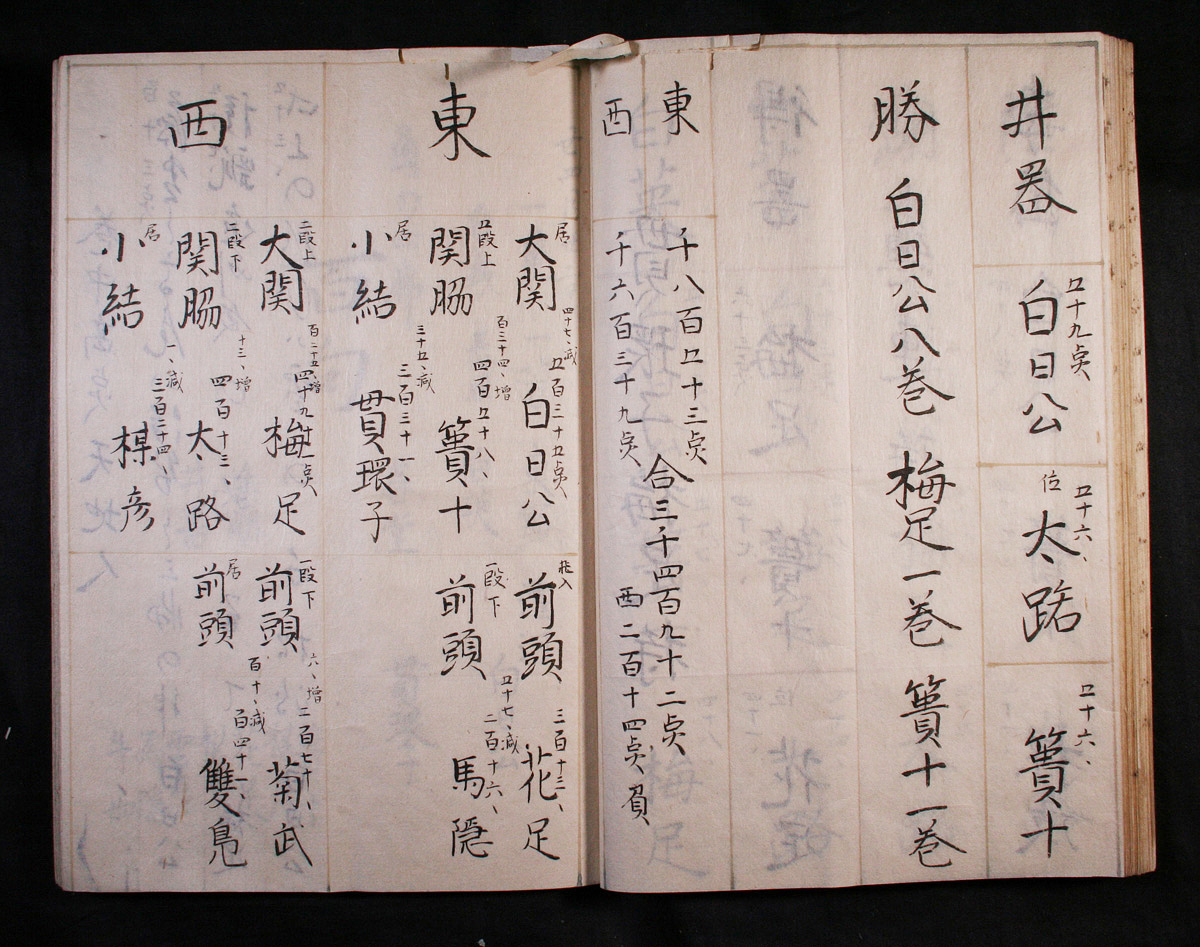 井器
五十九点
白日公
五十六、
位
太路
五十六、
簣十
勝 白日公八巻 梅足一巻 簣十一巻
東 千八百五十三点
西 千六百三十九点
合三千四百九十二点
西二百十四点負
東
居
大関
四十七、減
五百三十五点
白日公
五段上
関脇
百三十四、増
四百五十八、
簣十
居
小結
三十五、減
三百三十一、
貫環子
前頭
三百十三、
花足
一段下
前頭
五十七、減
二百十六、
馬隠
西
二段上
大関
百二十五、増
四百九十一点
梅足
二段下
関脇
十三、増
四百十三、
太路
居
小結
一、減
三百二十四、
楳彦
一段下
前頭
六、増
二百七十、
菊武
居
前頭
百十、減
百四十一、
雙鳧